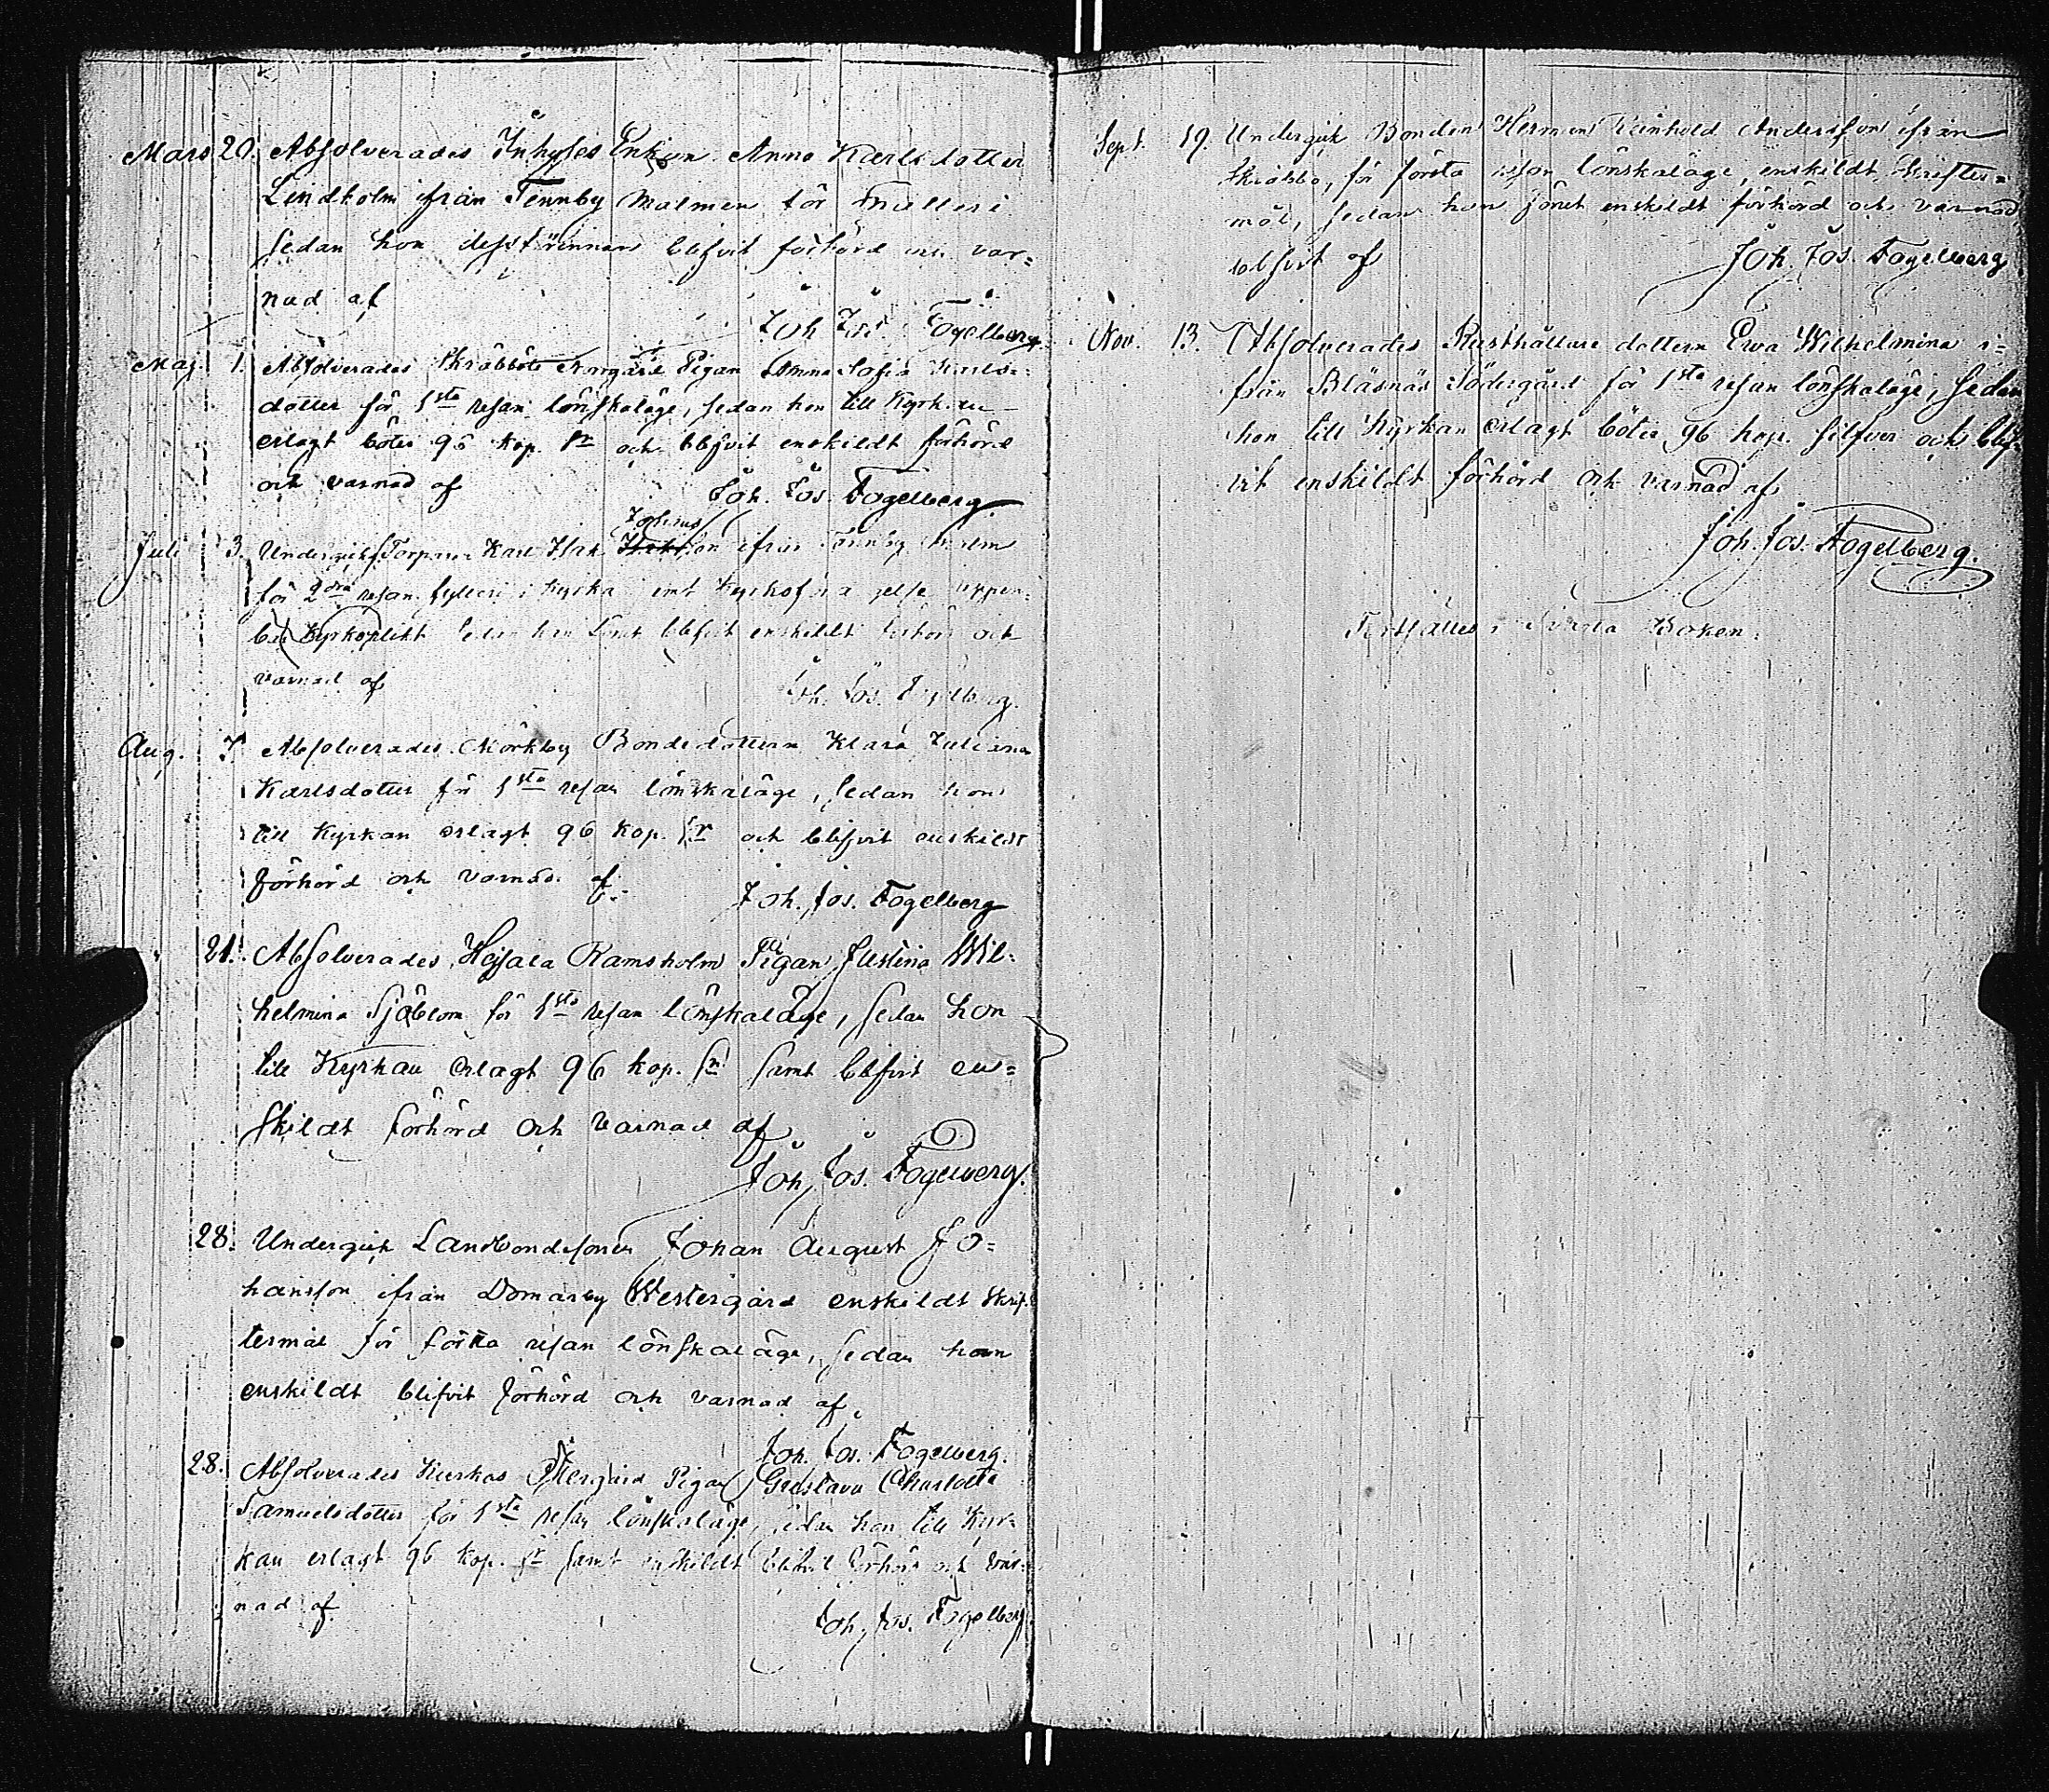 Mars 20. Absolverades Inhyses Enkan Anna Karlsdotter
Lindholm ifrån Tennby Malmen för
sedan hon dessförinnan blifvit förhörd och var=
nad af
Joh. Jos. Fogelberg.
Maj. 1. Absolverades Skräbböle Norrgård Pigan Anna Sofia Karls=
dotter för 1sta resan lönskaläge, sedan hon till Kyrkan
erlagt böter 96 kop. Sr och blifvit enskildt förhörd
och varnad af
Joh. Jos. Fogelberg.
Juli 3. Undergick Torparn Karl Isak Johans son ifrån Tennby Malm
för 2dra resan fylleri i Kyrka uppen=
bar Kyrkoplikt sedan han blifvit enskildt förhörd och
varnad af
Joh. Jos. Fogelberg.
Aug. 7. Absolverades Mörkby Bondedottern Klara Juliana
Karlsdotter för 1sta resan lönskaläge, sedan hon
till Kyrkan erlagt 96 kop. Sr och blifvit enskildt
förhörd och varnad af
Joh. Jos. Fogelberg
21. Absolverades Heisala Ramsholm Pigan Justina Wil=
helmina Sjöblom för 1sta resan lönskaläge, sedan hon
till Kyrkan erlagt 96 kop. Sr samt blifvit en=
skildt förhörd och varnad af
Joh. Jos. Fogelberg.
28. Undergick Landbondesonen Johan August Jo=
hansson ifrån Domarby Westergård enskildt Skrif=
termål för första resan lönskaläge, sedan han
enskildt blifvit förhörd och varnad af
Joh. Jos. Fogelberg.
28. Absolverades Kurkas Östergård Pigan Gustava Charlotta
Samuelsdotter för 1sta resan lönskaläge, sedan hon till Kyr=
kan erlagt 96 kop. Sr samt enskildt blifvit förhörd och var=
nad af
Joh. Jos. Fogelberg
Sept. 19. Undergick Bonden Herman Reinhold Andersson ifrån
Skräbbö, för första resan lönskaläge, enskildt Skrifter=
mål, sedan han jemt enskildt förhörd och varnad
blifvit af
Joh. Jos. Fogelberg
Nov. 13. Absolverades Rusthållare dottern Ewa Wilhelmina i=
från Bläsnäs Södergård för 1sta resan lönskaläge, sedan
hon till Kyrkan erlagt böter 96 kop. silfver och blif=
vit enskildt förhörd och varnad af
Joh. Jos. Fogelberg.
Fortsättes i Svarta Boken.